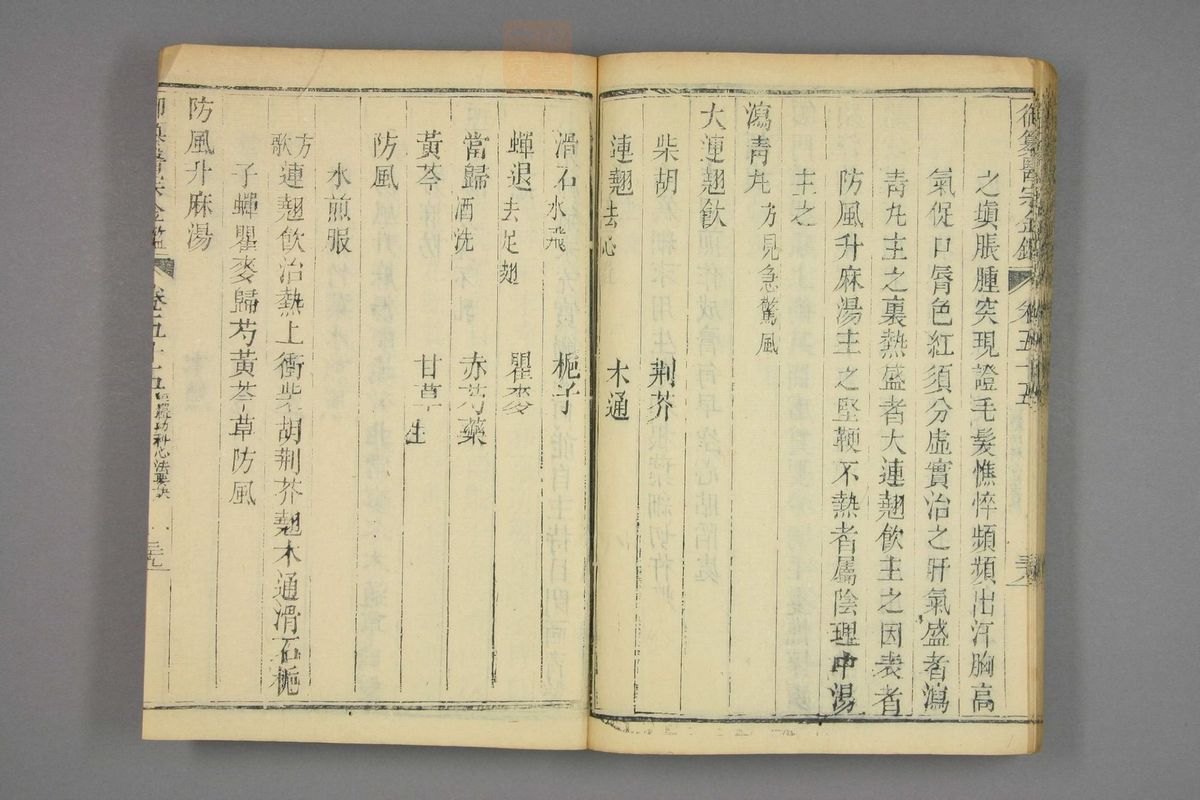 御纂醫宗金鑑 卷五十五
之塡脹腫突現證毛髮憔悴頻頻出汗胸高
氣促口脣色紅須分虛實治之肝氣盛者瀉
靑丸主之裏熱盛者大連翹飮主之因表者
防風升麻湯主之堅鞕不熱者屬陰理中湯
主之
瀉靑丸 方見急驚風
大連翹飮
柴胡 荆芥
連翹去心 木通
滑石水飛 梔子
蟬退去足翅 瞿麥
當歸酒洗 赤芍藥
黃芩 甘草生
防風
水煎服
方歌 連翹飮治熱上衝柴胡荆芥翹木通滑石梔
子蟬瞿麥歸芍黃芩草防風
防風升麻湯
御纂醫宗金鑑 卷五十五 幼科心法要訣 三九